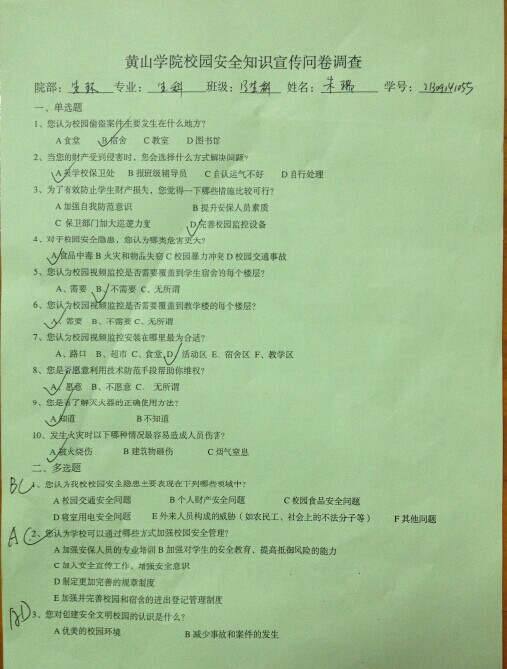 黄山学院校园安全知识宣传问卷调查
院部：生环 专业：生科 班级：13生科 姓名：朱瑞 学号：21309141055
一、单选题
1、您认为校园偷盗案件主要发生在什么地方？
A食堂 B宿舍 C教室 D图书馆
2、当您的财产受到侵害时，您会选择什么方式解决问题？
A 到学校保卫处 B 报班级辅导员 C自认运气不好 D自行处理
3、为了有效防止学生财产损失，您觉得一下哪些措施比较可行？
A加强自我防范意识 B提升安保人员素质
C 保卫部门加大巡逻力度 D完善校园监控设备
4、对于校园安全隐患，您认为哪类危害更大？
A食品中毒 B 火灾和物品失窃 C校园暴力冲突 D校园交通事故
5、您认为校园视频监控是否需要覆盖到学生宿舍的每个楼层？
A、需要 B、不需要 C、无所谓
6、您认为校园视频监控是否需要覆盖到教学楼的每个楼层？
A、需要 B、不需要 C、无所谓
7、您认为校园视频监控安装在哪里最为合适？
A、路口 B、超市 C、食堂 D、活动区 E、宿舍区 F、教学区
8、您是否愿意利用技术防范手段帮助你维权？
A、愿意 B、不愿意 C、无所谓
9、您是否了解灭火器的正确使用方法？
A知道 B不知道
10、发生火灾时以下哪种情况最容易造成人员伤害？
A被火烧伤 B建筑物砸伤 C烟气窒息
二、多选题
BC 1、您认为我校校园安全隐患主要表现在下列哪些领域中？
A校园交通安全问题 B个人财产安全问题 C校园食品安全问题
D寝室用电安全问题 E外来人员构成的威胁（如农民工、社会上的不法分子等） F其他问题
AC 2、您认为学校可以通过哪些方式加强校园安全管理？
A加强安保人员的专业培训 B加强对学生的安全教育，提高抵御风险的能力
C加大安全宣传工作，增强安全意识
D制定更加完善的规章制度
E加强并完善校园和宿舍的进出登记管理制度
AD 3、您对创建安全文明校园的认识是什么？
A优美的校园环境 B减少事故和案件的发生